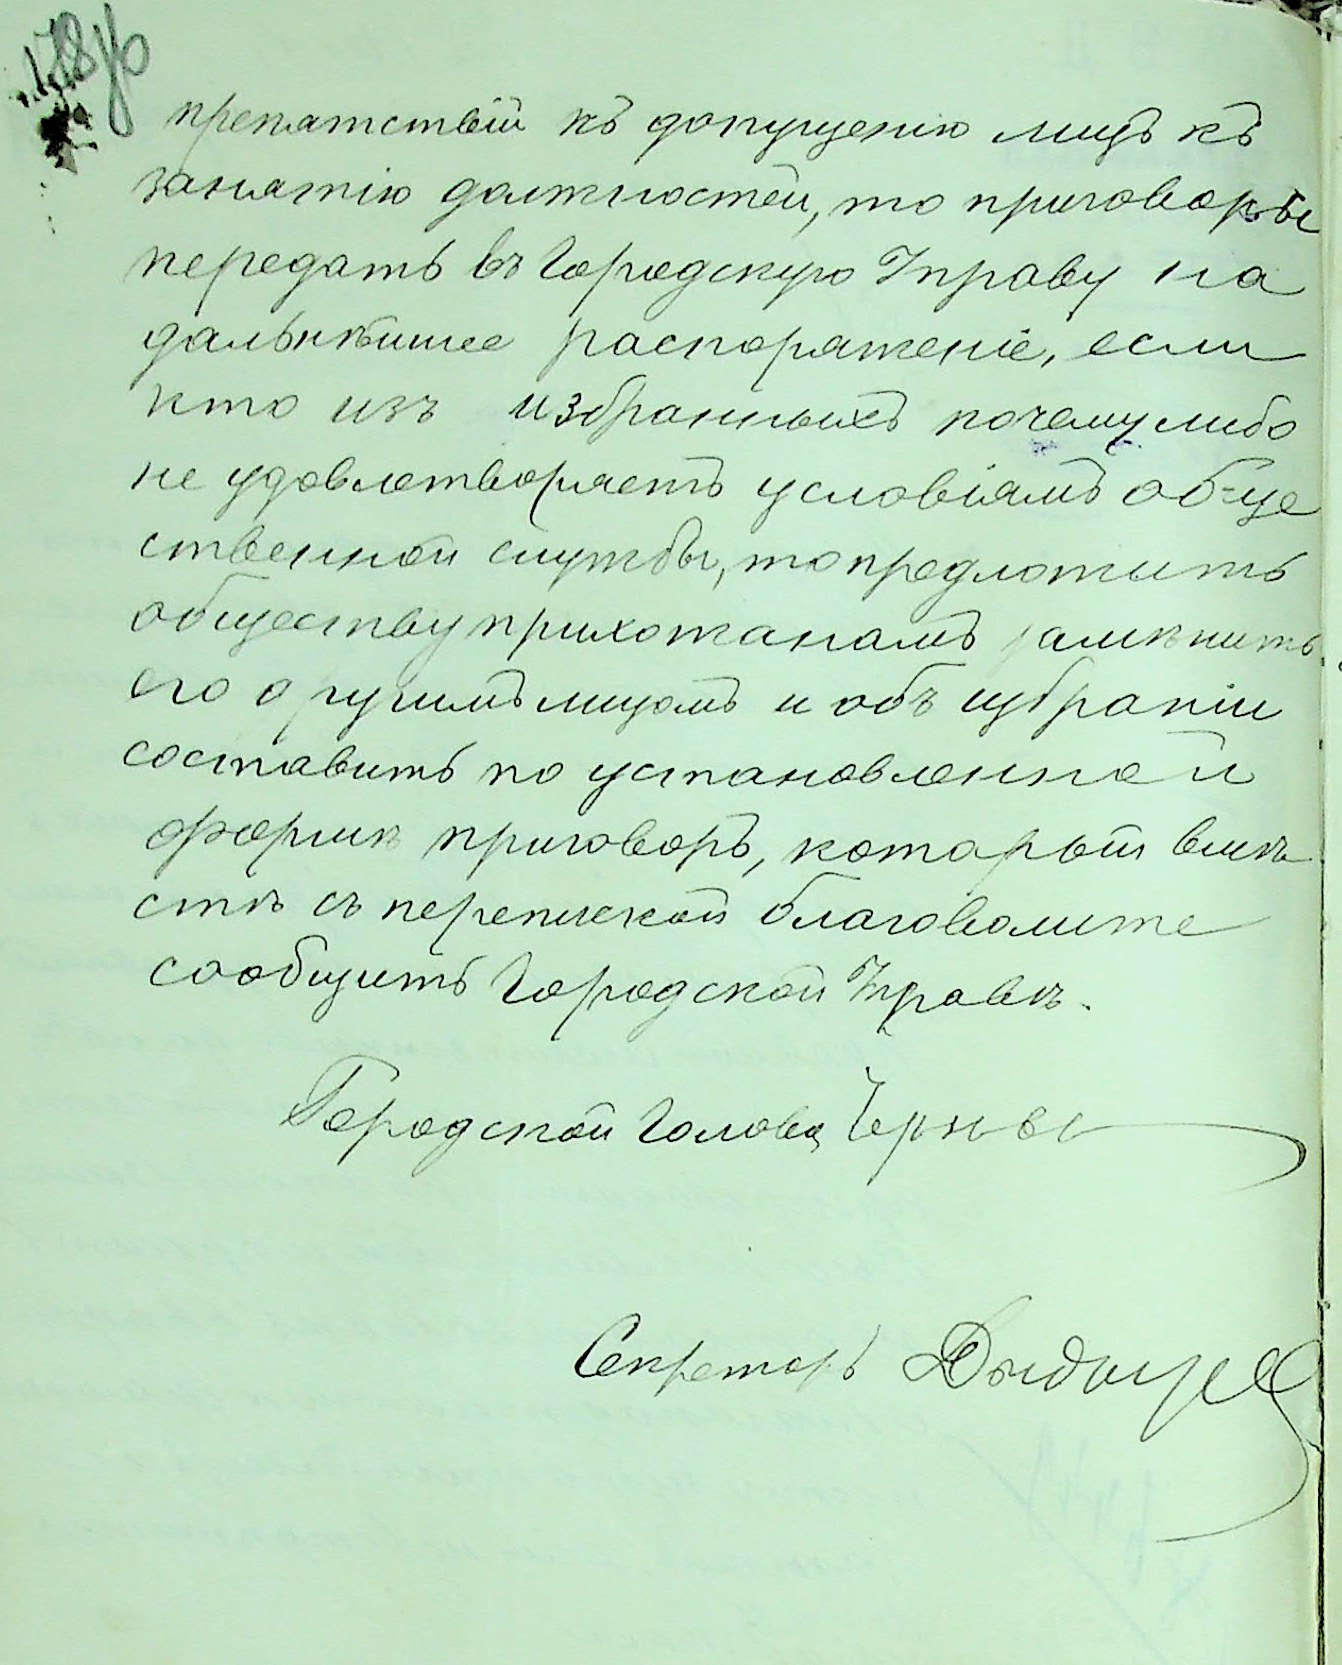 препятствій къ допущенію лицъ къ
занятію должностей, то приговоры
передать въ Городскую Управу на
дальнѣйшее распоряженіе, если
кто изъ избранныхъ почему либо
не удовлетворяетъ условіямъ обще
ственной службы, то предложить
обществу прихожанамъ замѣнить
его другимъ лицомъ и объ избраніи
составить по установленной
формѣ приговоръ, который вмѣ
стѣ съ перепиской благоволите
сообщить Городской Управѣ.
Городской Голова
Секретарь